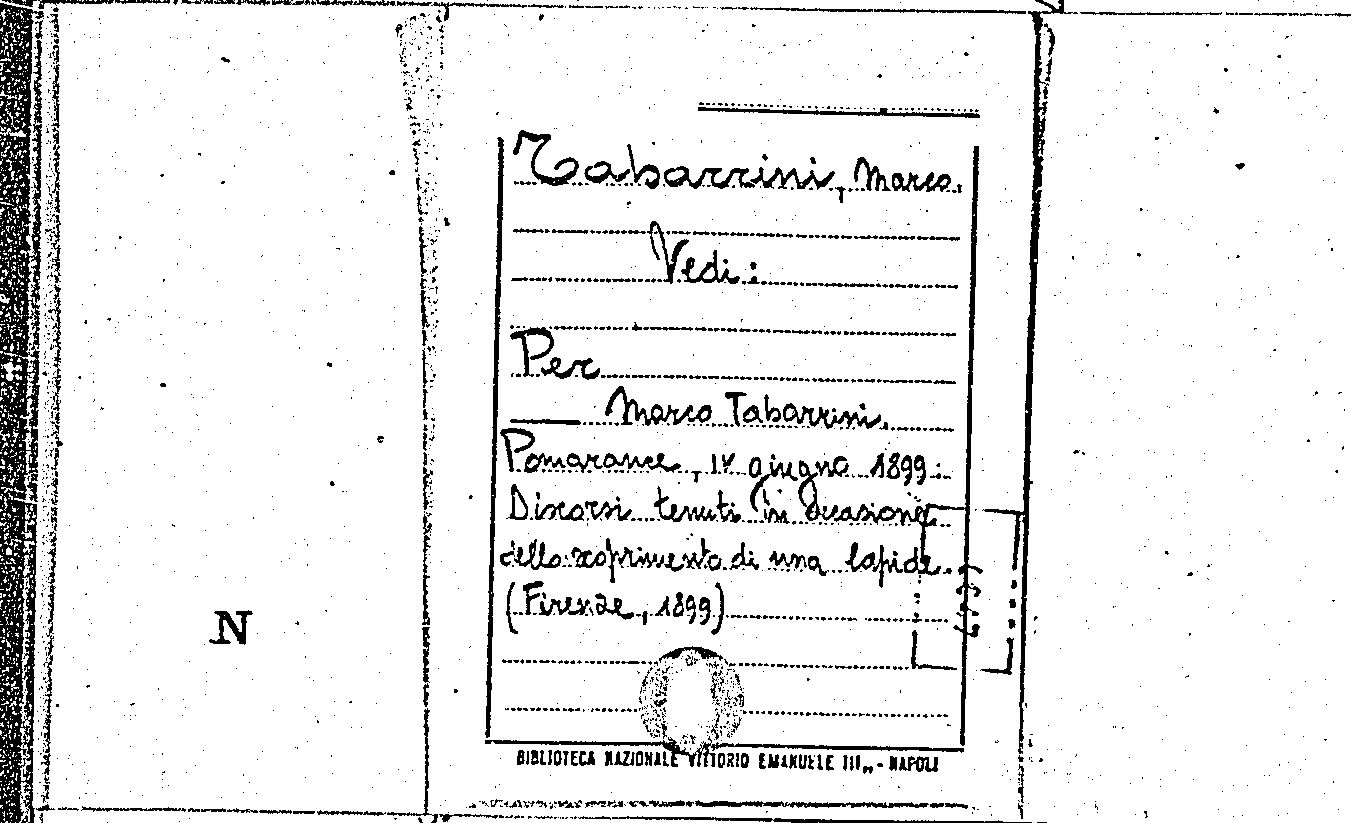 Tabarrini, Marco.
Vedi:
Per
Marco Tabarrini.
Pomarance, IV giugno 1899:
Discorsi tenuti in occasione
dello scoprimento di una lapide.
(Firenze, 1899)
N
BIBLIOTECA NAZIONALE VITTORIO EMANUELE III,, - NAPOLI